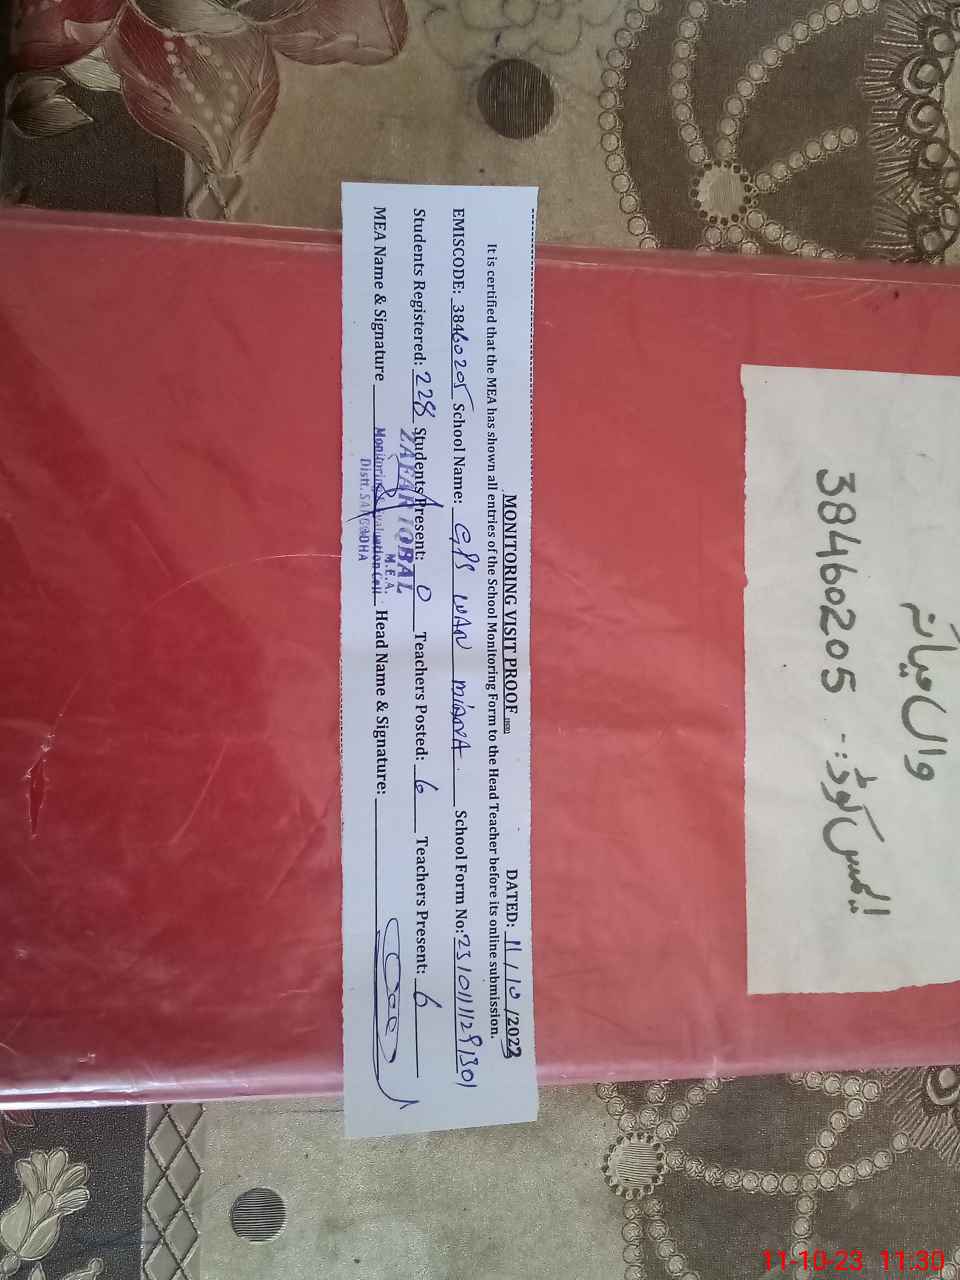 MONITORING VISIT PROOF
DATED: 11/10/2023
It is certified that the MEA has shown all entries of the School Monitoring Form to the Head Teacher before its online submission.
EMISCODE: 38460205 School Name: GPS WAN MIANA. School Form No: 2310111291301
Students Registered: 228 Students Present: 0 Teachers Posted: 6 Teachers Present: 6
MEA Name & Signature Head Name & Signature:
ZAFAR IQBAL
M.E.A.
Monitoring & Evaluation Cell
Distt. SARGODHA
واں میانہ
ایمس کوڈ:- 38460205
11-10-23 11:30